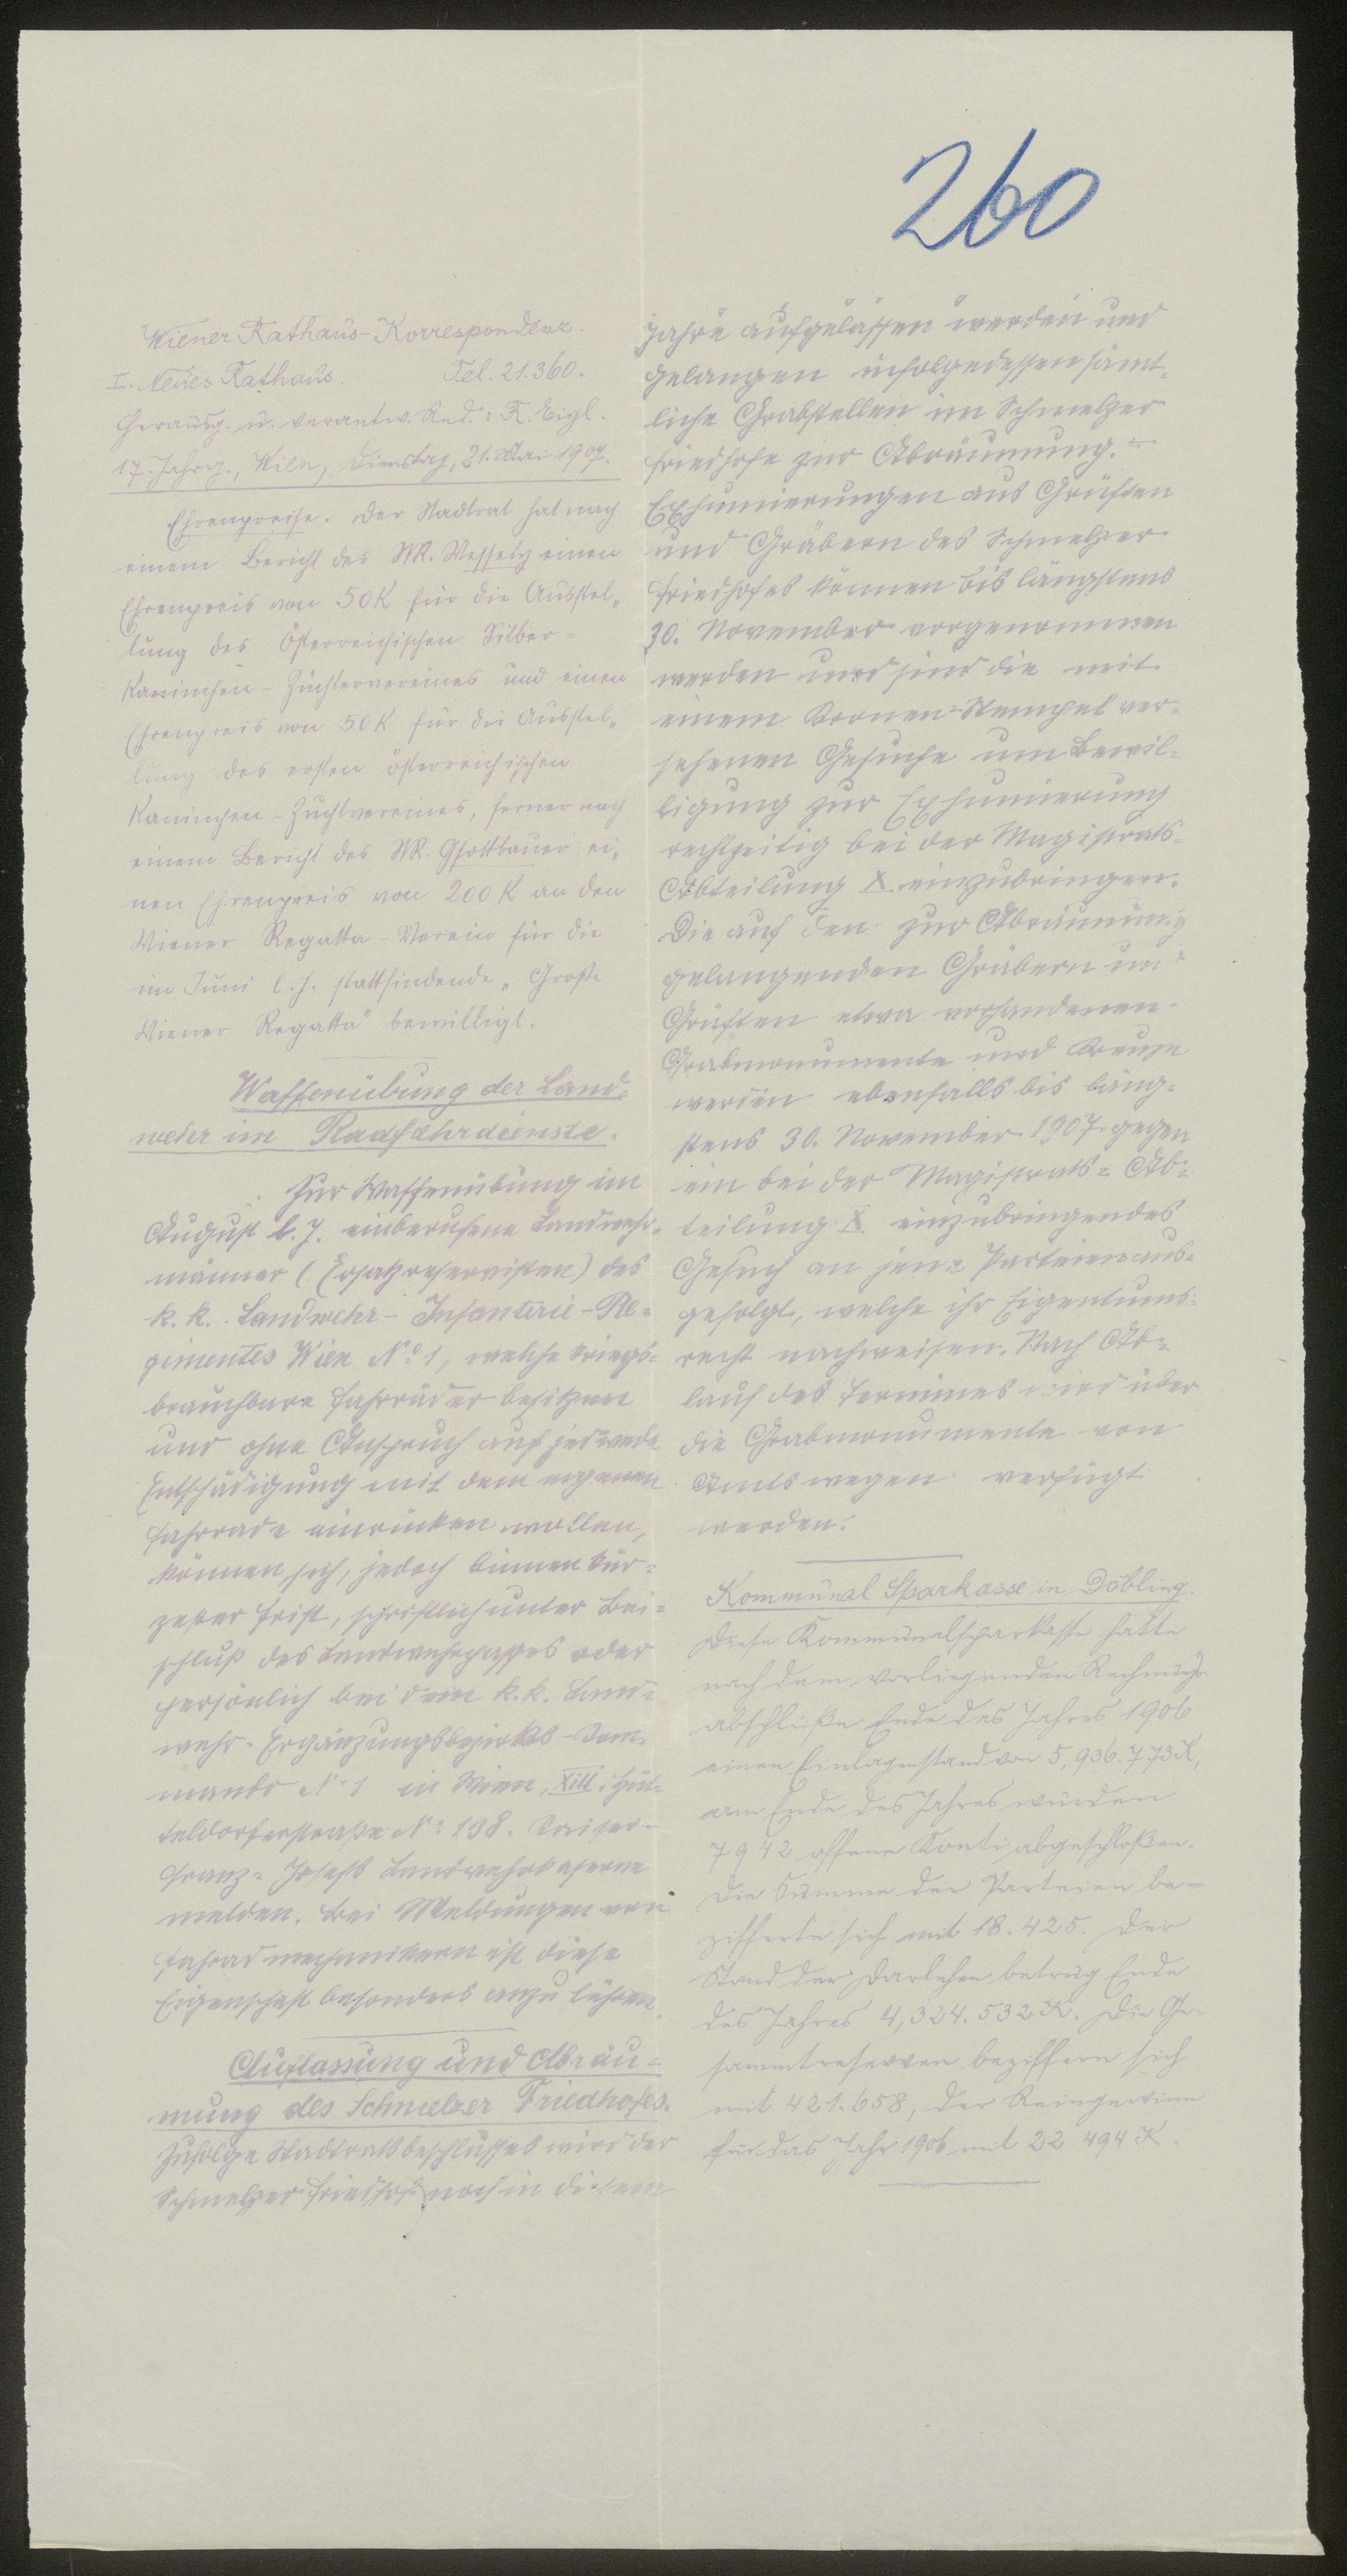 260
Wiener Rathaus-Korrespondenz.
I. Neues Rathaus. Tel. 21.360.
Herausg. u. verantw. Red.: R. Eigl.
17. Jahrg., Wien, Dienstag, 21. Mai 1907.
Ehrenpreise. Der Stadtrat hat nach
einem Bericht des StR. Wessely einen
Ehrenpreis von 50 K für die Ausstel-
lung des Österreichischen Silber-
Kaninchen-Züchtervereines und einen
Ehrenpreis von 50 K für die Ausstel-
lung des ersten österreichischen
Kaninchen-Zuchtvereines, ferner nach
einem Bericht des StR. Gsottbauer ei-
nen Ehrenpreis von 200 K an den
Wiener Regatta-Verein für die
im Juni l. J. stattfindende „Große
Wiener Regatta" bewilligt.
Waffenübung der Land-
wehr im Radfahrdienste.
Zur Waffenübung im
August l. J. einberufene Landwehr-
männer (Ersatzreservisten) des
k. k. Landwehr-Infanterie-Re-
gimentes Wien No 1, welche kriegs-
brauchbare Fahrräder besitzen
und ohne Anspruch auf jedwede
Entschädigung mit dem eigenen
Fahrrade einrücken wollen,
können sich, jedoch binnen kür-
zester Frist, schriftlich unter Bei-
schluß des Landwehrpasses oder
persönlich bei dem k. k. Land-
wehr-Ergänzungsbezirks-Kom-
mando No 1 in Wien, XIII. Hüt-
teldorferstraße No 138. Kaiser-
Franz-Josefs Landwehrkaserne
melden. Bei Meldungen von
Fahradmechanikern ist diese
Eigenschaft besonders anzuführen.
Auflassung und Abräu-
mung des Schmelzer Friedhofes.
Zufolge Stadtratsbeschlusses wird der
Schmelzer Friedhof noch in diesem
Jahre aufgelassen werden und
gelangen infolgedessen sämt-
liche Grabstellen im Schmelzer
Friedhofe zur Abräumung. -
Exhumierungen aus Grüften
und Gräbern des Schmelzer
Friedhofes können bis längstens
30. November vorgenommen
werden und sind die mit
einem Kronen-Stempel ver-
sehenen Gesuche um Bewil-
ligung zur Exhumierung
rechtzeitig bei der Magistrats-
Abteilung X einzubringen.
Die auf den zur Abräumung
gelangenden Gräbern und
Grüften etwa vorhandenen
Grabmonumente und Kreuze
werden ebenfalls bis läng-
stens 30. November 1907 gegen
ein bei der Magistrats-Ab-
teilung X einzubringendes
Gesuch an jene Parteien aus-
gefolgt, welche ihr Eigentums-
recht nachweisen. Nach Ab-
lauf des Termines wird über
die Grabmonumente von
Amts wegen verfügt
werden.
Kommunal Sparkasse in Döbling.
Diese Kommunalsparkasse hatte
nach dem vorliegenden Rechnungs-
abschluße Ende des Jahres 1906
einen Einlagenstand von 5,936.773 K,
am Ende des Jahres wurden
7942 offene Konti abgeschloßen.
Die Summe der Parteien be-
zifferte sich mit 18.425. Der
Stand der Darlehen betrug Ende
des Jahres 4,324.532 K. Die Ge-
sammtreserven beziffern sich
mit 421.658, der Reingewinn
für das Jahr 1906 mit 22 494 K.